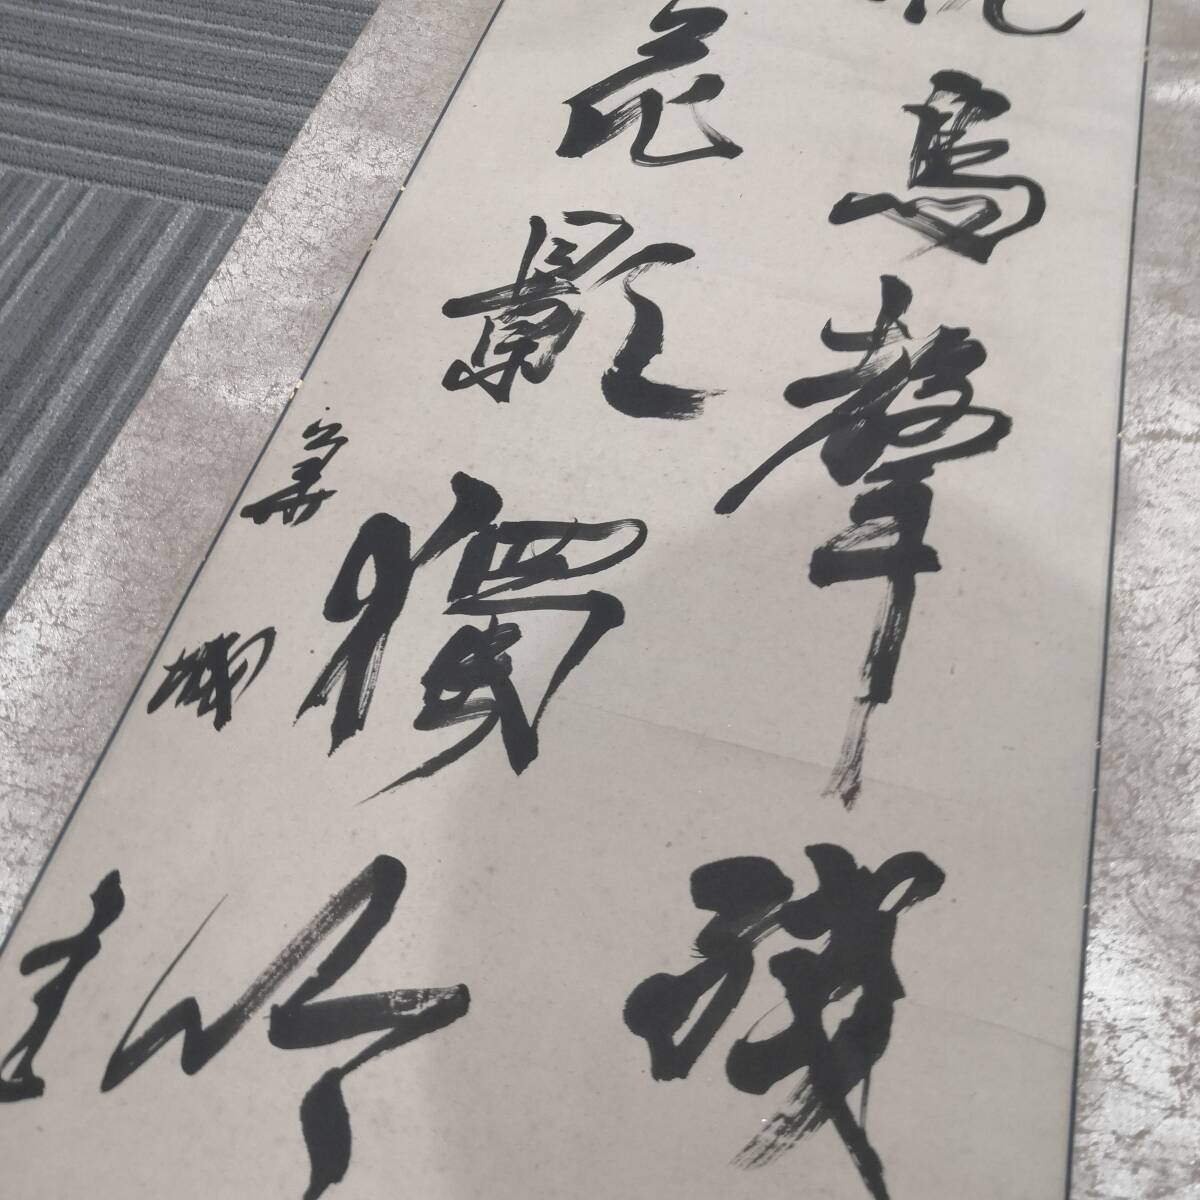 鳥聲殘
花影獨吟